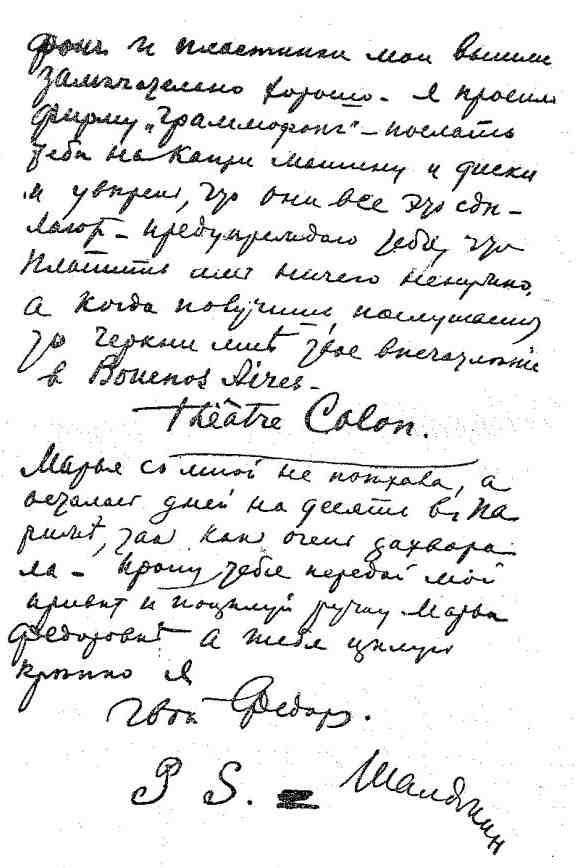 фонъ и пластинки мои вышли
замѣчательно хорошо – я просилъ
фирму „Граммофонъ“ – послать
тебѣ на Капри машину и диски
и увѣренъ, что они все это сдѣ-
лают – предупреждаю тебя, что
платить им ничего ненужно,
а когда получишь, послушаешь
то черкни мнѣ твое впечатлѣніе
в Bouenos Aires –
Théâtre Colon.
Марья со мной не поѣхала, а
осталась дней на десять въ Па
рижѣ, так как очень захвора
ла – прошу тебя передай мой
привѣт и поцѣлуй ручку Марьи
Федоровнѣ а тебя цѣлую
крѣпко я
Твой Федоръ.
P S. = Шаляпин